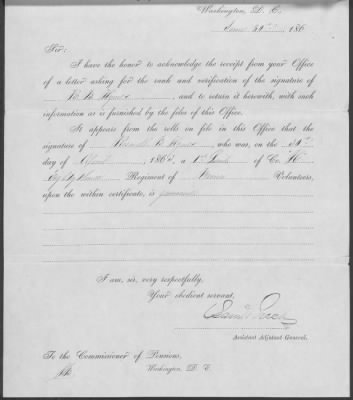 Washington, D. C.
186
Sir:
I have the honor to acknowledge the receipt from your Office
of a letter asking for the rank and verification of the signature of
, and to return it herewith, with such
information as is furnished by the files of this Office.
It appears from the rolls on file in this Office that the
signature of , who was, on the
day of April 186 , a 1st Lieut. of Co. H
Regiment of Volunteers,
upon the within certificate, is genuine.
I am, sir, very respectfully,
Your obedient servant,
Assistant Adjutant General.
To the Commissioner of Pensions,
Washington, D. C.